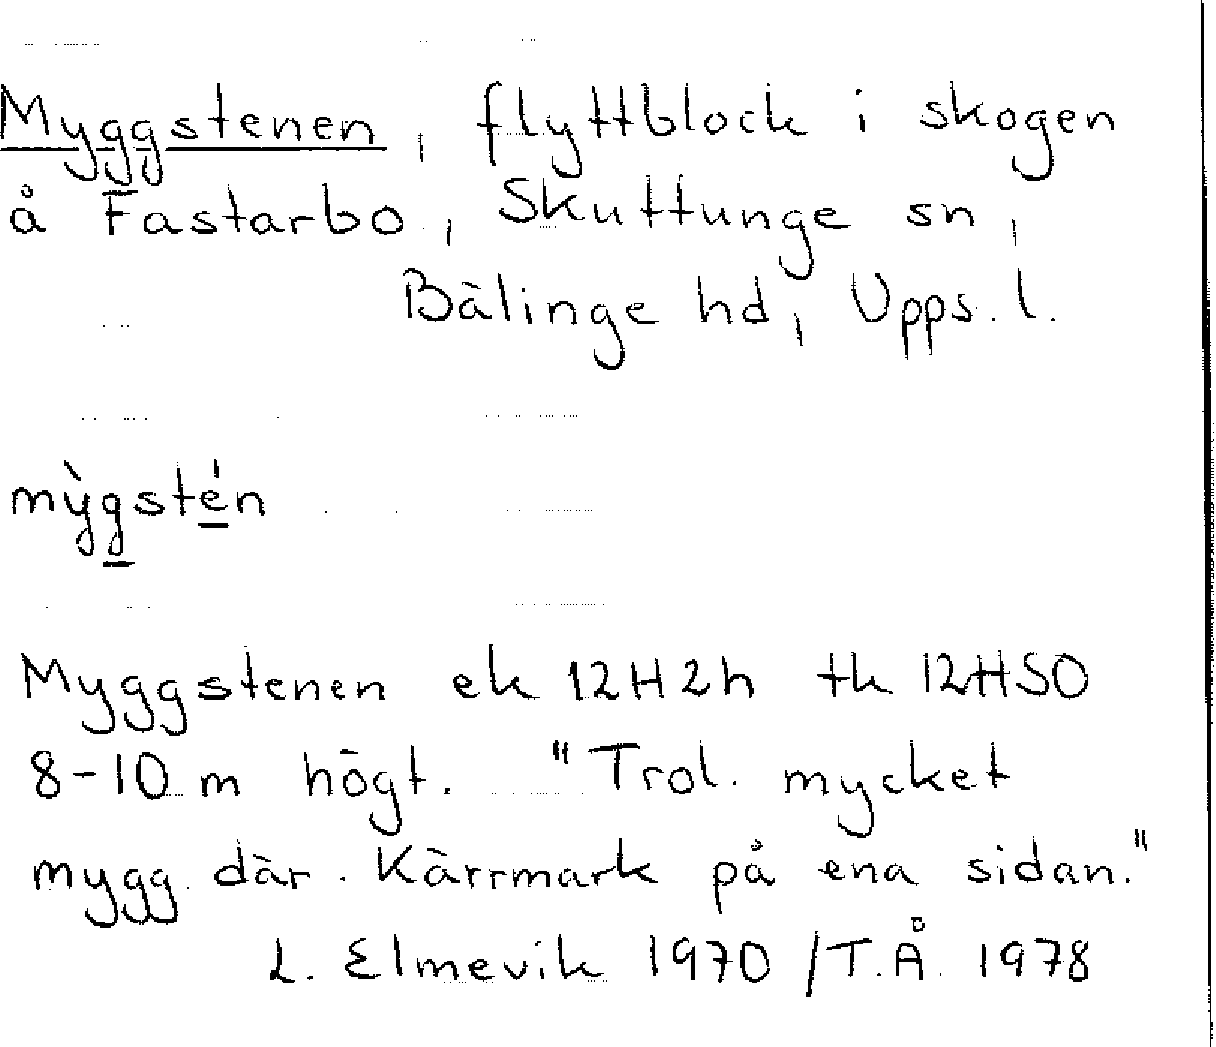 Myggstenen, flyttblock i skogen
å Fastarbo, Skuttunge sn,
Bälinge hd, Upps. l.
mỳgstén
Myggstenen ek 12H2h tk 12HSO
8-10 m högt. "Trol. mycket
mygg där. Kärrmark på ena sidan."
L. Elmevik 1970 /T.Å. 1978